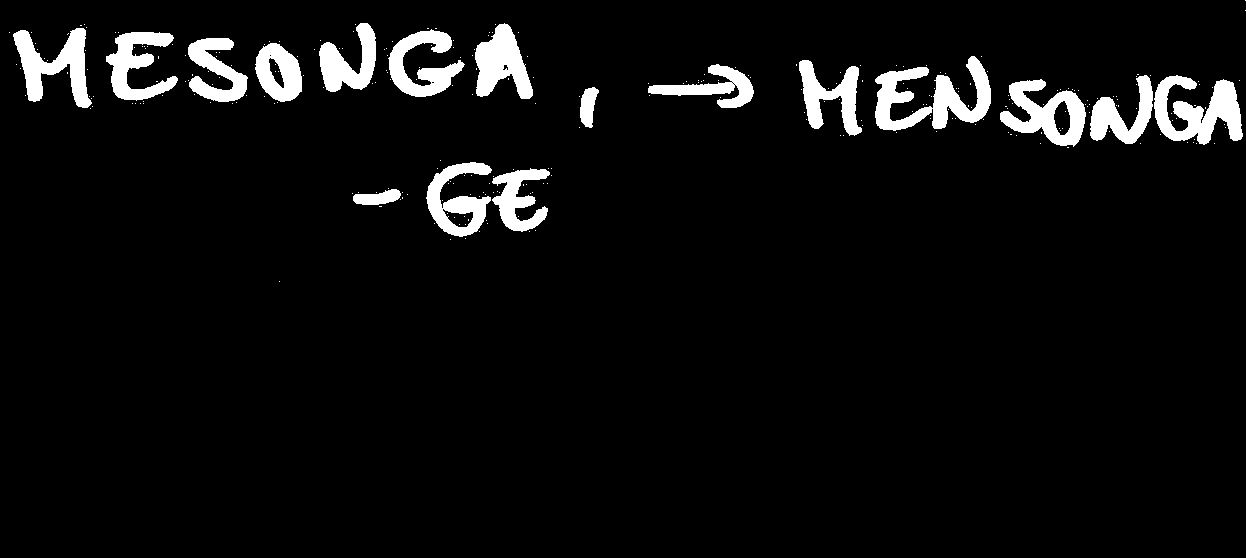 MESONGA, → MENSONGA
-GE